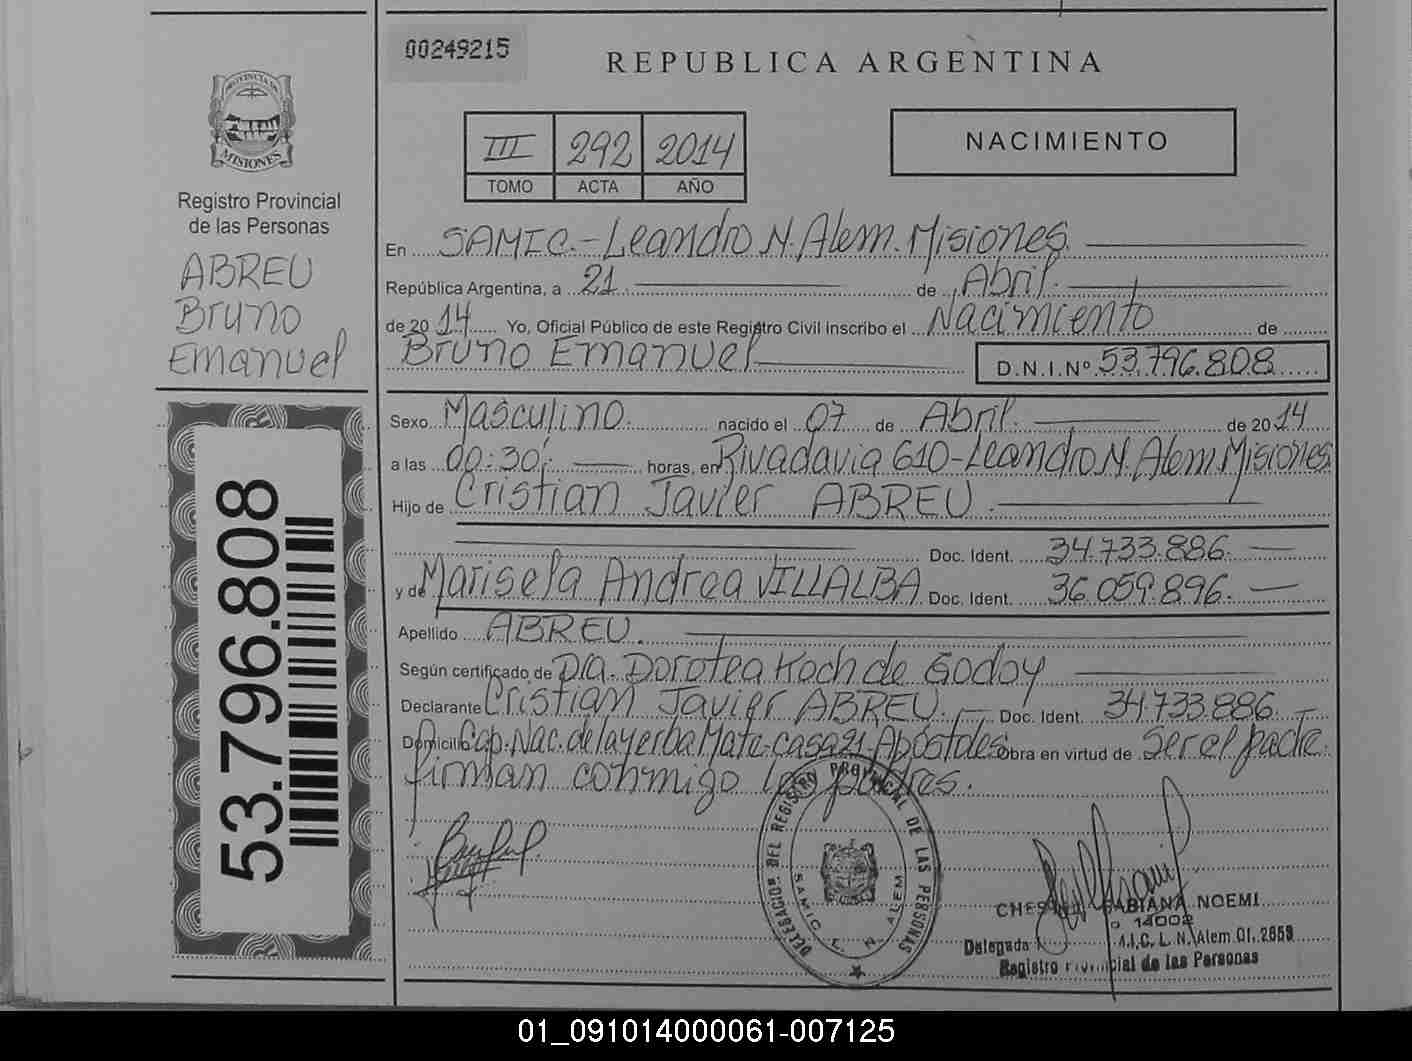 00249215
REPUBLICA ARGENTINA
PROVINCIA DE
MISIONES
Registro Provincial
de las Personas
ABREU
Bruno
Emanuel
III 292 2014
TOMO ACTA AÑO
NACIMIENTO
En SAMIC.-Leandro N. Alem. Misiones
República Argentina, a 21 de Abril.
de 2014 Yo, Oficial Público de este Registro Civil inscribo el Nacimiento de
Bruno Emanuel D.N.I.Nº 53.796.808
Sexo Masculino. nacido el 07 de Abril. de 2014
a las 00:30, horas, en Rivadavia 610-Leandro N. Alem. Misiones
Hijo de Cristian Javier ABREU
Doc. Ident. 34.733.886.
y de Marisela Andrea VILLALBA Doc. Ident. 36.059.896.
Apellido ABREU.
Según certificado de Dra. Dorotea Koch de Godoy
Declarante Cristian Javier ABREU. Doc. Ident. 34.733.886.
Domicilio Cap. Nac. de la yerba Mate-casa 21-Apóstoles obra en virtud de ser el padre
firman conmigo los padres.
53.796.808
DELEGACION DEL REGISTRO PROVINCIAL DE LAS PERSONAS
SAMIC. L. N. ALEM
FABIANA NOEMI
14002
Delegada
L. N. Alem Of. 2858
Registro Provincial de las Personas
01_091014000061-007125